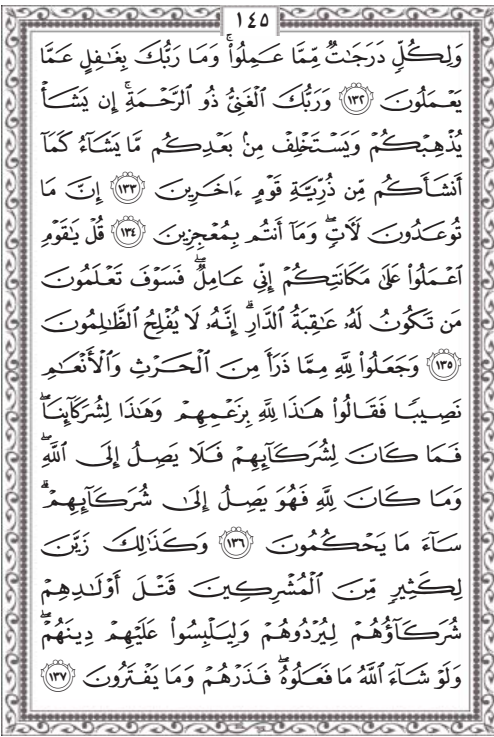 ١٤٥
وَلِكُلٍّ دَرَجَٰتٌ مِّمَّا عَمِلُوا۟ ۚ وَمَا رَبُّكَ بِغَٰفِلٍ عَمَّا
يَعْمَلُونَ ١٣٢ وَرَبُّكَ ٱلْغَنِىُّ ذُو ٱلرَّحْمَةِ ۚ إِن يَشَأْ
يُذْهِبْكُمْ وَيَسْتَخْلِفْ مِنۢ بَعْدِكُم مَّا يَشَآءُ كَمَآ
أَنشَأَكُم مِّن ذُرِّيَّةِ قَوْمٍ ءَاخَرِينَ ١٣٣ إِنَّ مَا
تُوعَدُونَ لَءَاتٍ ۖ وَمَآ أَنتُم بِمُعْجِزِينَ ١٣٤ قُلْ يَٰقَوْمِ
ٱعْمَلُوا۟ عَلَىٰ مَكَانَتِكُمْ إِنِّى عَامِلٌ ۖ فَسَوْفَ تَعْلَمُونَ
مَن تَكُونُ لَهُۥ عَٰقِبَةُ ٱلدَّارِ ۗ إِنَّهُۥ لَا يُفْلِحُ ٱلظَّٰلِمُونَ
١٣٥ وَجَعَلُوا۟ لِلَّهِ مِمَّا ذَرَأَ مِنَ ٱلْحَرْثِ وَٱلْأَنْعَٰمِ
نَصِيبًا فَقَالُوا۟ هَٰذَا لِلَّهِ بِزَعْمِهِمْ وَهَٰذَا لِشُرَكَآئِنَا ۖ
فَمَا كَانَ لِشُرَكَآئِهِمْ فَلَا يَصِلُ إِلَى ٱللَّهِ ۖ
وَمَا كَانَ لِلَّهِ فَهُوَ يَصِلُ إِلَىٰ شُرَكَآئِهِمْ ۗ
سَآءَ مَا يَحْكُمُونَ ١٣٦ وَكَذَٰلِكَ زَيَّنَ
لِكَثِيرٍ مِّنَ ٱلْمُشْرِكِينَ قَتْلَ أَوْلَٰدِهِمْ
شُرَكَآؤُهُمْ لِيُرْدُوهُمْ وَلِيَلْبِسُوا۟ عَلَيْهِمْ دِينَهُمْ ۖ
وَلَوْ شَآءَ ٱللَّهُ مَا فَعَلُوهُ ۖ فَذَرْهُمْ وَمَا يَفْتَرُونَ ١٣٧